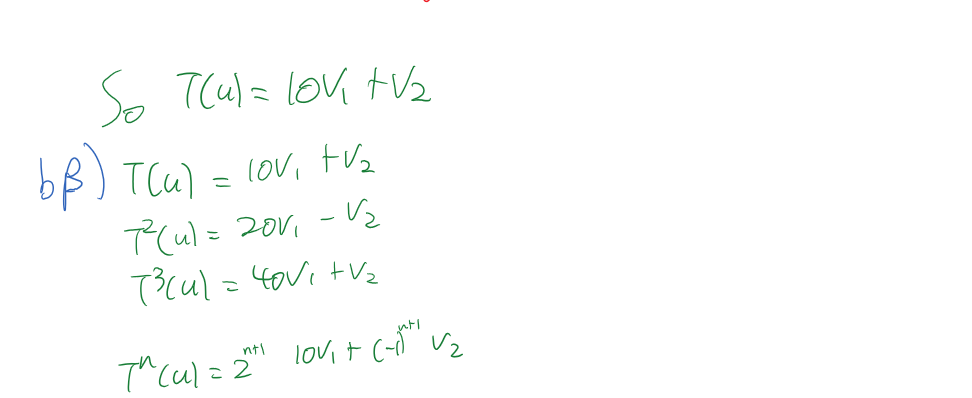 So T(u) = 10V₁ + V₂
bβ) T(u) = 10V₁ + V₂
T²(u) = 20V₁ - V₂
T³(u) = 40V₁ + V₂
Tⁿ(u) = 2ⁿ⁺¹ 10V₁ + (-1)ⁿ⁺¹ V₂